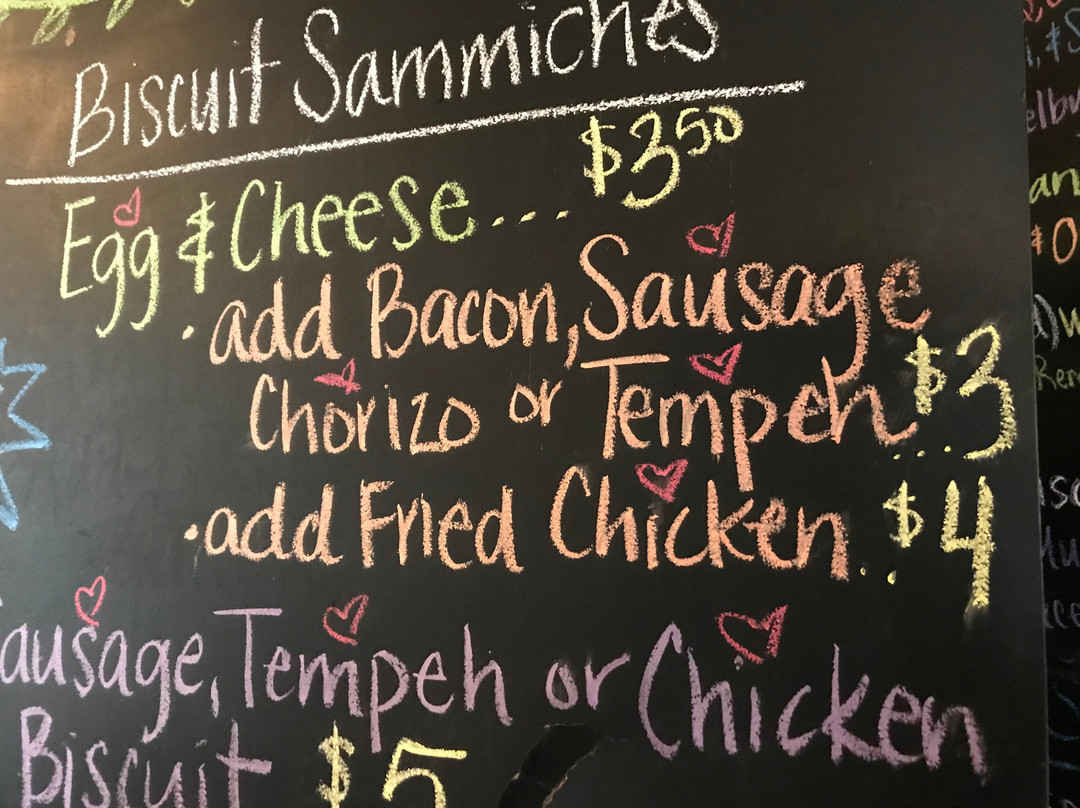 Biscuit Sammiches
Egg & Cheese.... $3.50
· add Bacon, Sausage
Chorizo or Tempeh... $3
· add Fried Chicken.. $4
Sausage, Tempeh or Chicken
Biscuit $5